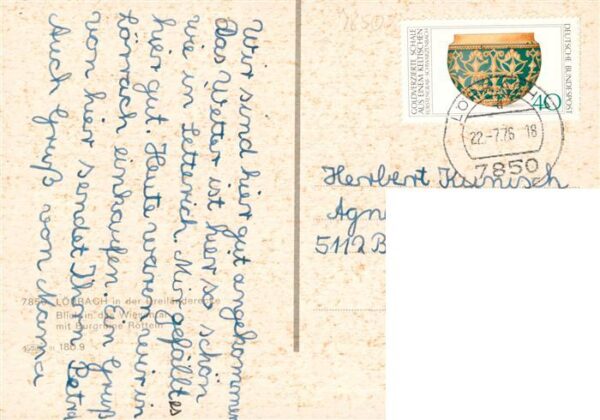 Wir sind hier gut angekommen
das Wetter ist hier so schön
wie in Setterich. Mir gefällt es
hier gut. Heute waren wir in
Lörrach einkaufen. Ein Gruß
von hier sendet Ihnen Petra
Auch Gruß von Mama
7850 LÖRRACH in der Dreiländerecke
Blick in das Wiesental
mit Burgruine Rötteln
180.9
GOLDVERZIERTE SCHALE
AUS EINEM KELTISCHEN
FÜRSTENGRAB · SCHWARZENBACH
DEUTSCHE BUNDESPOST
40
22.-7.76 18
7850
Herbert
Agn
5112 B